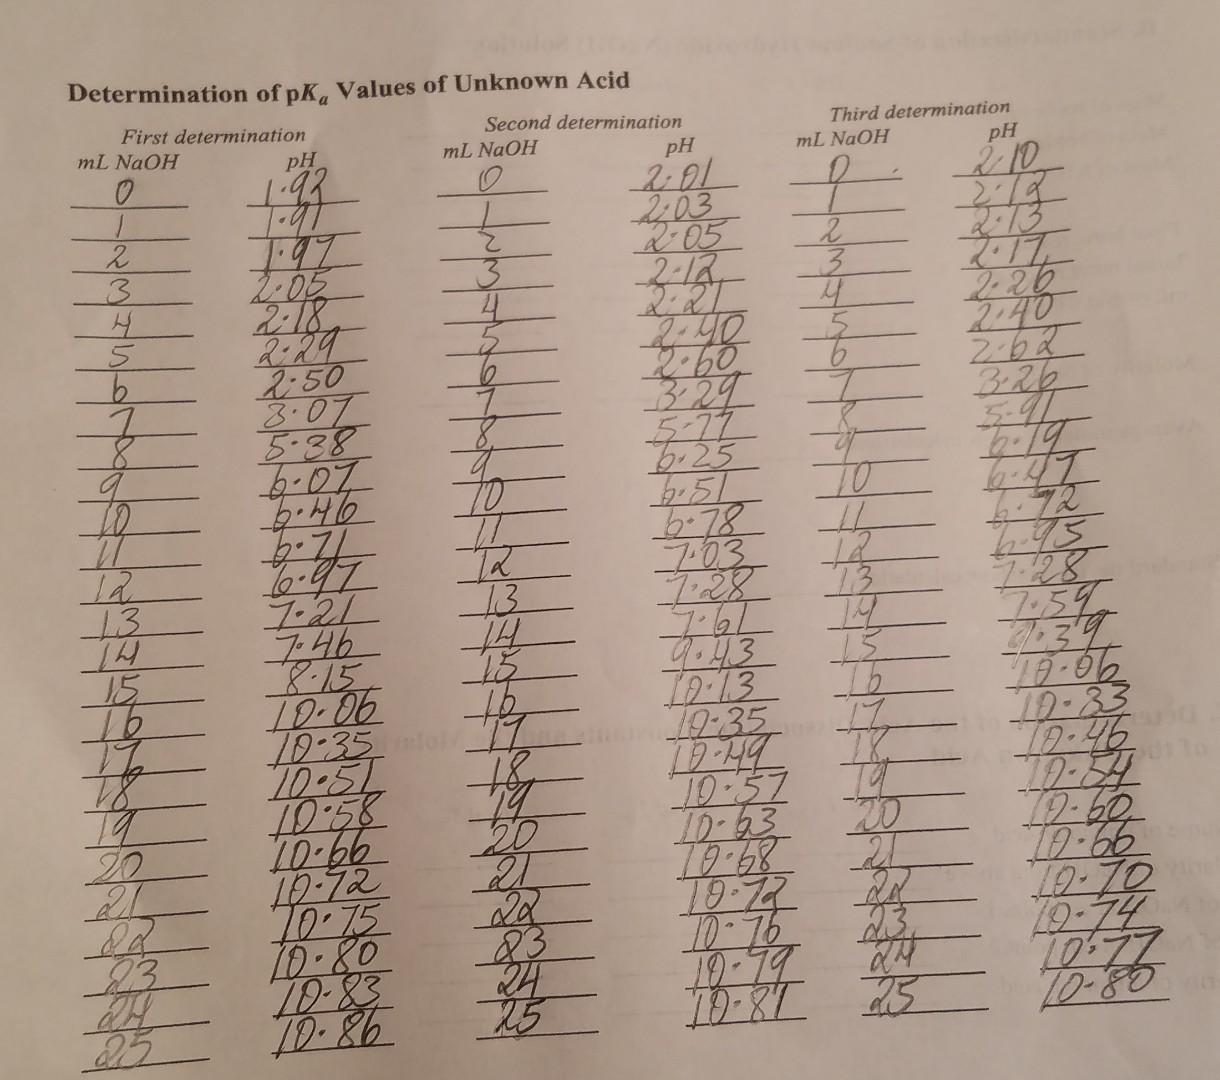 Determination of pKa Values of Unknown Acid
First determination Second determination Third determination
mL NaOH pH mL NaOH pH mL NaOH pH
0 1.92 0 2.01 0 2.10
1 1.91 1 2.03 1 2.12
2 1.97 2 2.05 2 2.13
3 2.05 3 2.12 3 2.17
4 2.18 4 2.21 4 2.26
5 2.29 5 2.40 5 2.40
6 2.50 6 2.60 6 2.62
7 3.07 7 3.29 7 3.26
8 5.38 8 5.77 8 5.91
9 6.07 9 6.25 9 6.19
10 6.46 10 6.51 10 6.47
11 6.71 11 6.78 11 6.72
12 6.97 12 7.03 12 6.95
13 7.21 13 7.28 13 7.28
14 7.46 14 7.61 14 7.59
15 8.15 15 9.43 15 9.39
16 10.06 16 10.13 16 10.06
17 10.35 17 10.35 17 10.33
18 10.51 18 10.49 18 10.46
19 10.58 19 10.57 19 10.54
20 10.66 20 10.63 20 10.60
21 10.72 21 10.68 21 10.66
22 10.75 22 10.72 22 10.70
23 10.80 23 10.76 23 10.74
24 10.83 24 10.79 24 10.77
25 10.86 25 10.81 25 10.80